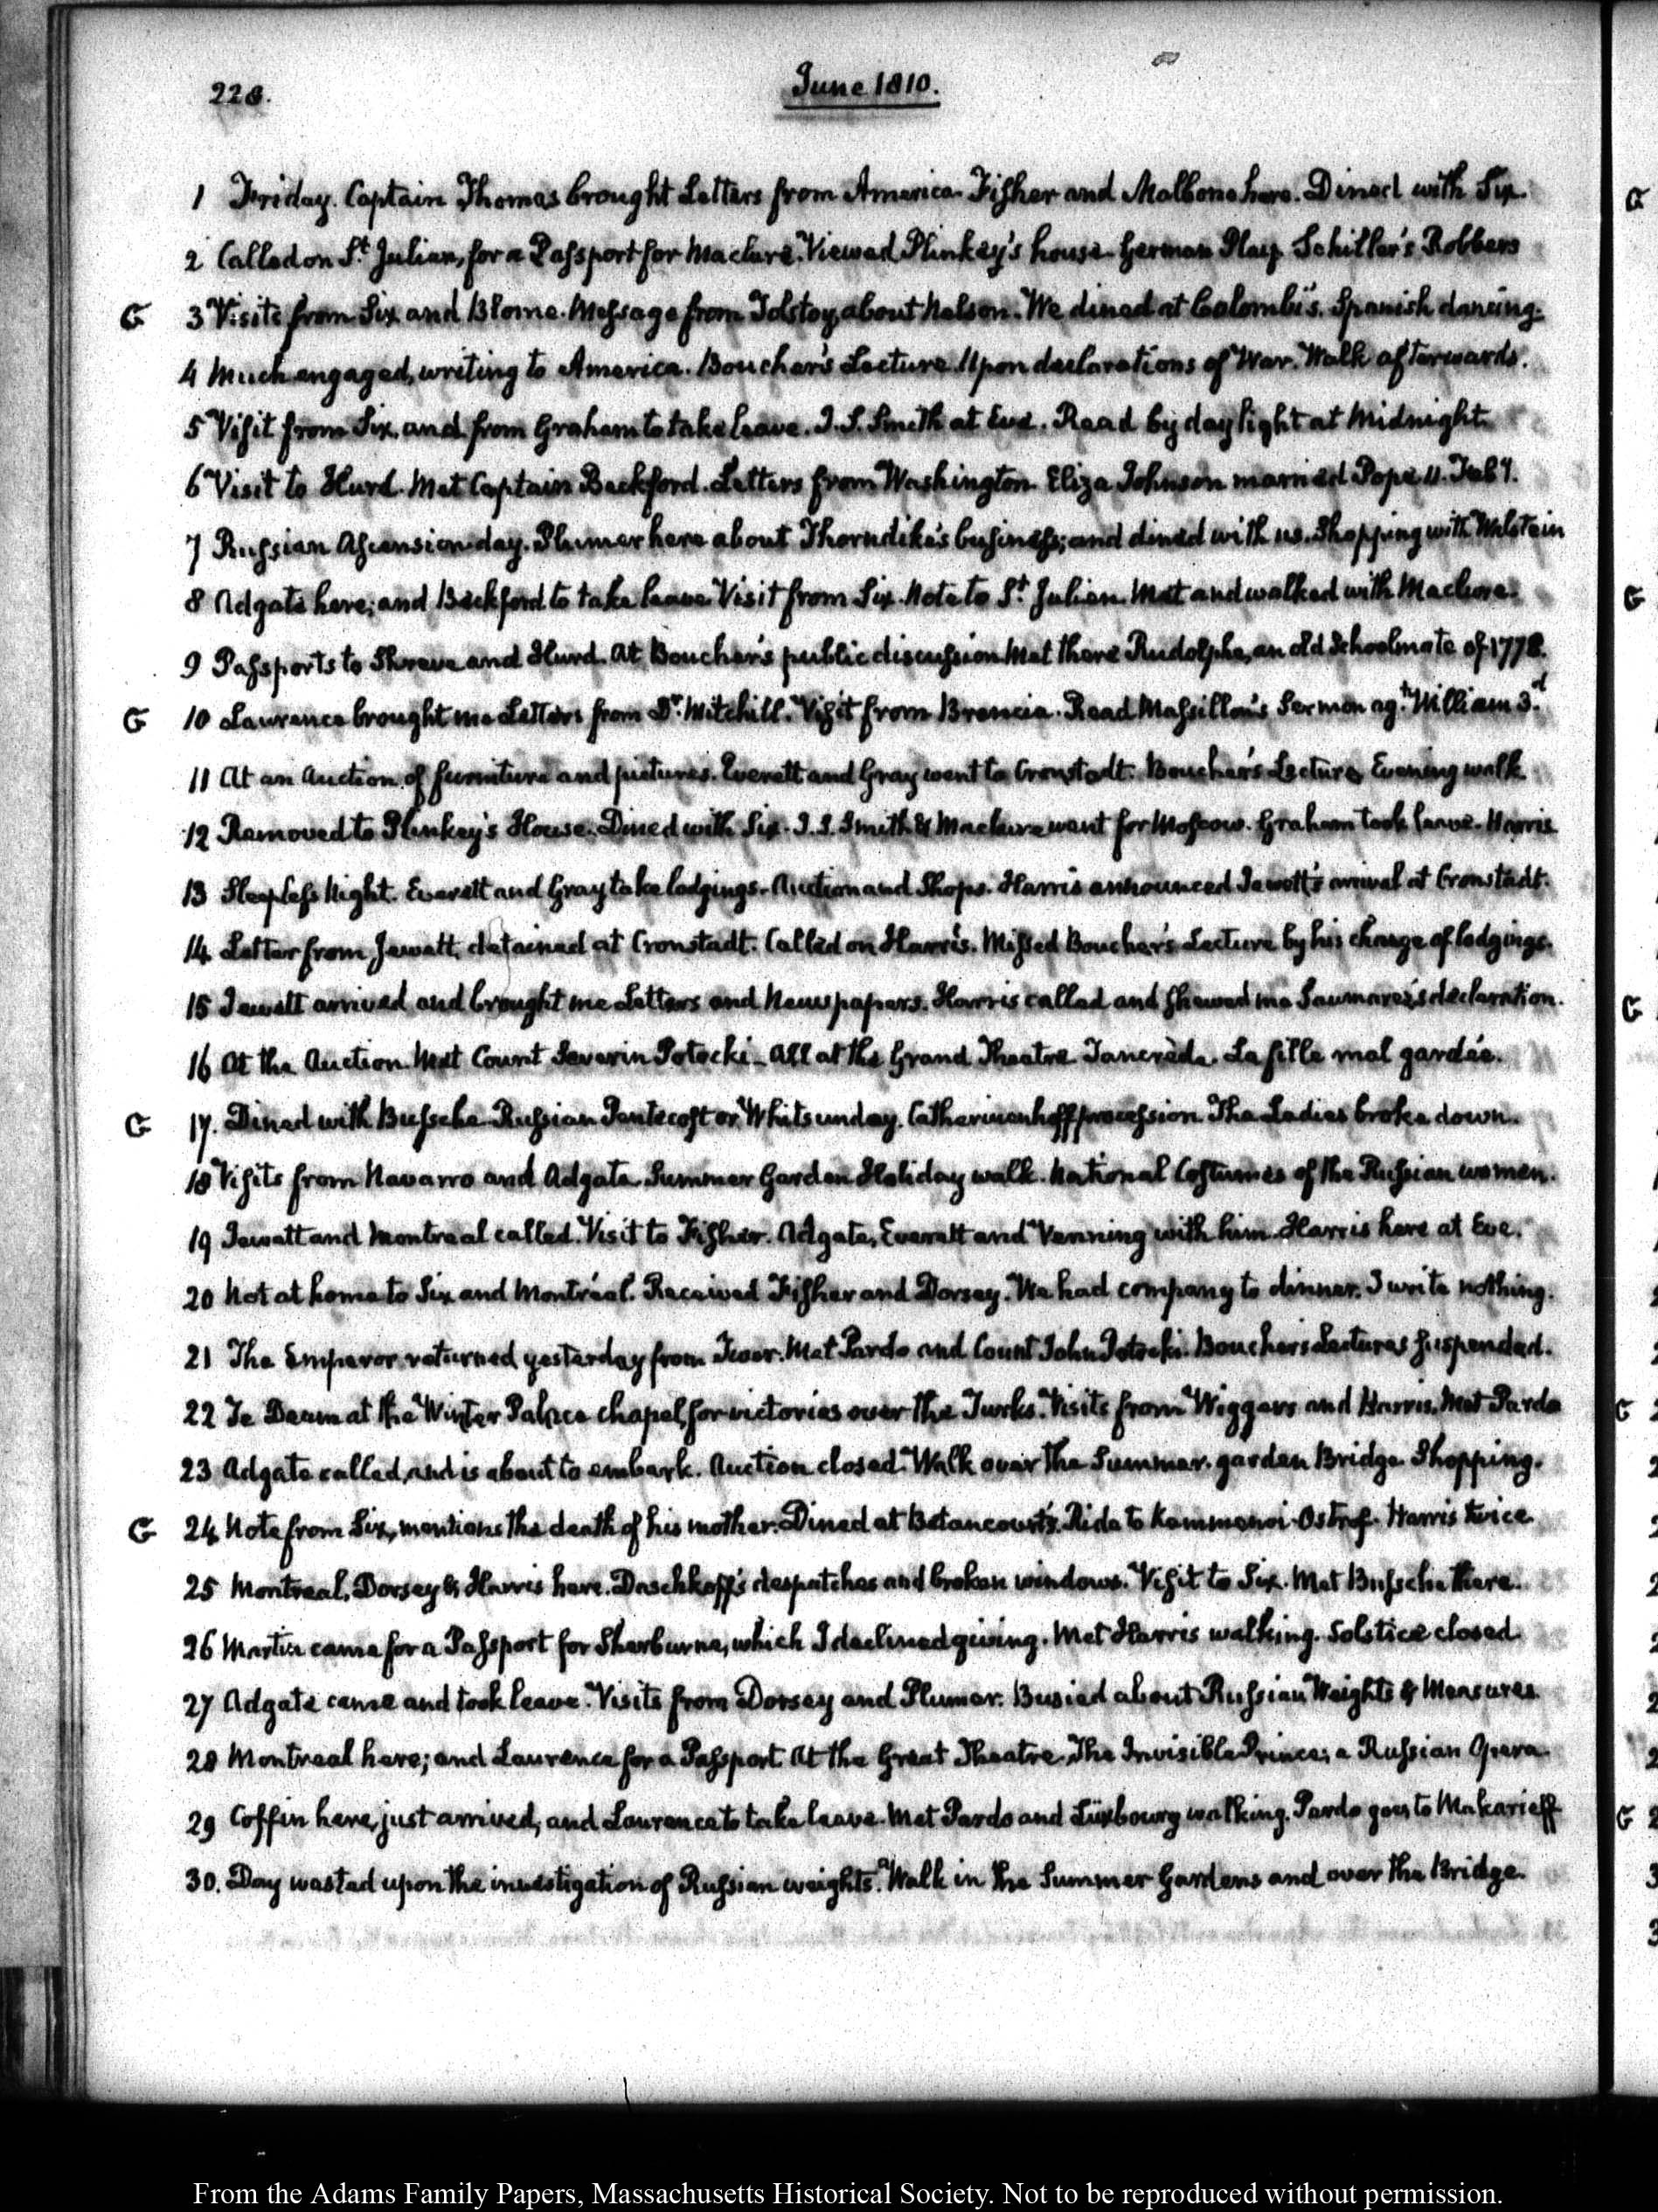 228.
June 1810.
1 Friday. Captain Thomas brought Letters from America. Fisher and Malbone here. Dined with Six.
2 Called on St. Julien, for a Passport for Maclure. Viewed Plinkey's house. German Play. Schiller's Robbers
G 3 Visits from Six and Blome. Message from Tolstoy, about Nelson. We dined at Colombi's. Spanish dancing.
4 Much engaged, writing to America. Boucher's Lecture. Upon declarations of War. Walk afterwards.
5 Visit from Six, and from Graham to take leave. J. S. Smith at Eve. Read by daylight at Midnight.
6 Visit to Hurd. Met Captain Beckford. Letters from Washington. Eliza Johnson married Pope 11. Feby.
7 Russian Ascension day. Plumer here about Thorndike's business; and dined with us. Shopping with Walstein
8 Adgate here; and Beckford to take leave. Visit from Six. Note to St. Julien. Met and walked with Maclure.
9 Passports to Shreve and Hurd. At Boucher's public discussion. Met there Rudolphe, an old Schoolmate of 1778.
G 10 Lawrence brought me Letters from Dr. Mitchill. Visit from Brancia. Read Massillon's Sermon agt. William 3.d
11 At an Auction of furniture and pictures. Everett and Gray went to Cronstadt. Boucher's Lecture, Evening walk.
12 Removed to Plinkey's House. Dined with Six. J. S. Smith & Maclure went for Moscow. Graham took leave. Harris
13 Sleepless Night. Everett and Gray take lodgings. Auction and Shops. Harris announced Jewett's arrival at Cronstadt.
14. Letter from Jewett, detained at Cronstadt. Called on Harris. Missed Boucher's Lecture by his change of lodgings.
15 Jewett arrived and brought me Letters and Newspapers. Harris called and shewed me Saumarez's declaration.
16 At the Auction. Met Count Severin Potocki_ All at the Grand Theatre Tancrède. La fille mal gardée.
G 17. Dined with Bussche. Russian Pentecost or Whitsunday. Catherinenhoff procession. The Ladies broke down.
18 Visits from Navarro and Adgate. Summer Garden Holiday walk. National Costumes of the Russian women.
19 Jewett and Montreal called. Visit to Fisher. Adgate, Everett and Venning with him. Harris here at Eve.
20 Not at home to Six and Montréal. Received Fisher and Dorsey. We had company to dinner. I write nothing.
21 The Emperor returned yesterday from Twer. Met Pardo and Count John Potocki. Boucher's Lectures suspended.
22 Te Deum at the Winter Palace chapel, for victories over the Turks. Visits from Wiggers and Harris. Met Pardo
23 Adgate called, and is about to embark. Auction closed. Walk over the Summer garden Bridge. Shopping.
G 24. Note from Six, mentions the death of his mother. Dined at Betancourt's. Ride to Kammenoi-Ostrof. Harris twice
25 Montreal, Dorsey & Harris here. Daschkoff's despatches and broken windows. Visit to Six. Met Bussche there.
26 Martin came for a Passport for Sherburne, which I declined giving. Met Harris walking. Solstice closed.
27 Adgate came and took leave. Visits from Dorsey and Plumer. Busied about Russian Weights & Measures.
28 Montreal here; and Laurence for a Passport. At the Great Theatre. The Invisible Prince; a Russian Opera.
29 Coffin here, just arrived, and Laurence to take leave. Met Pardo and Luxbourg walking. Pardo goes to Makarieff
30. Day wasted upon the investigation of Russian weights. Walk in the Summer Gardens and over the Bridge.
From the Adams Family Papers, Massachusetts Historical Society. Not to be reproduced without permission.